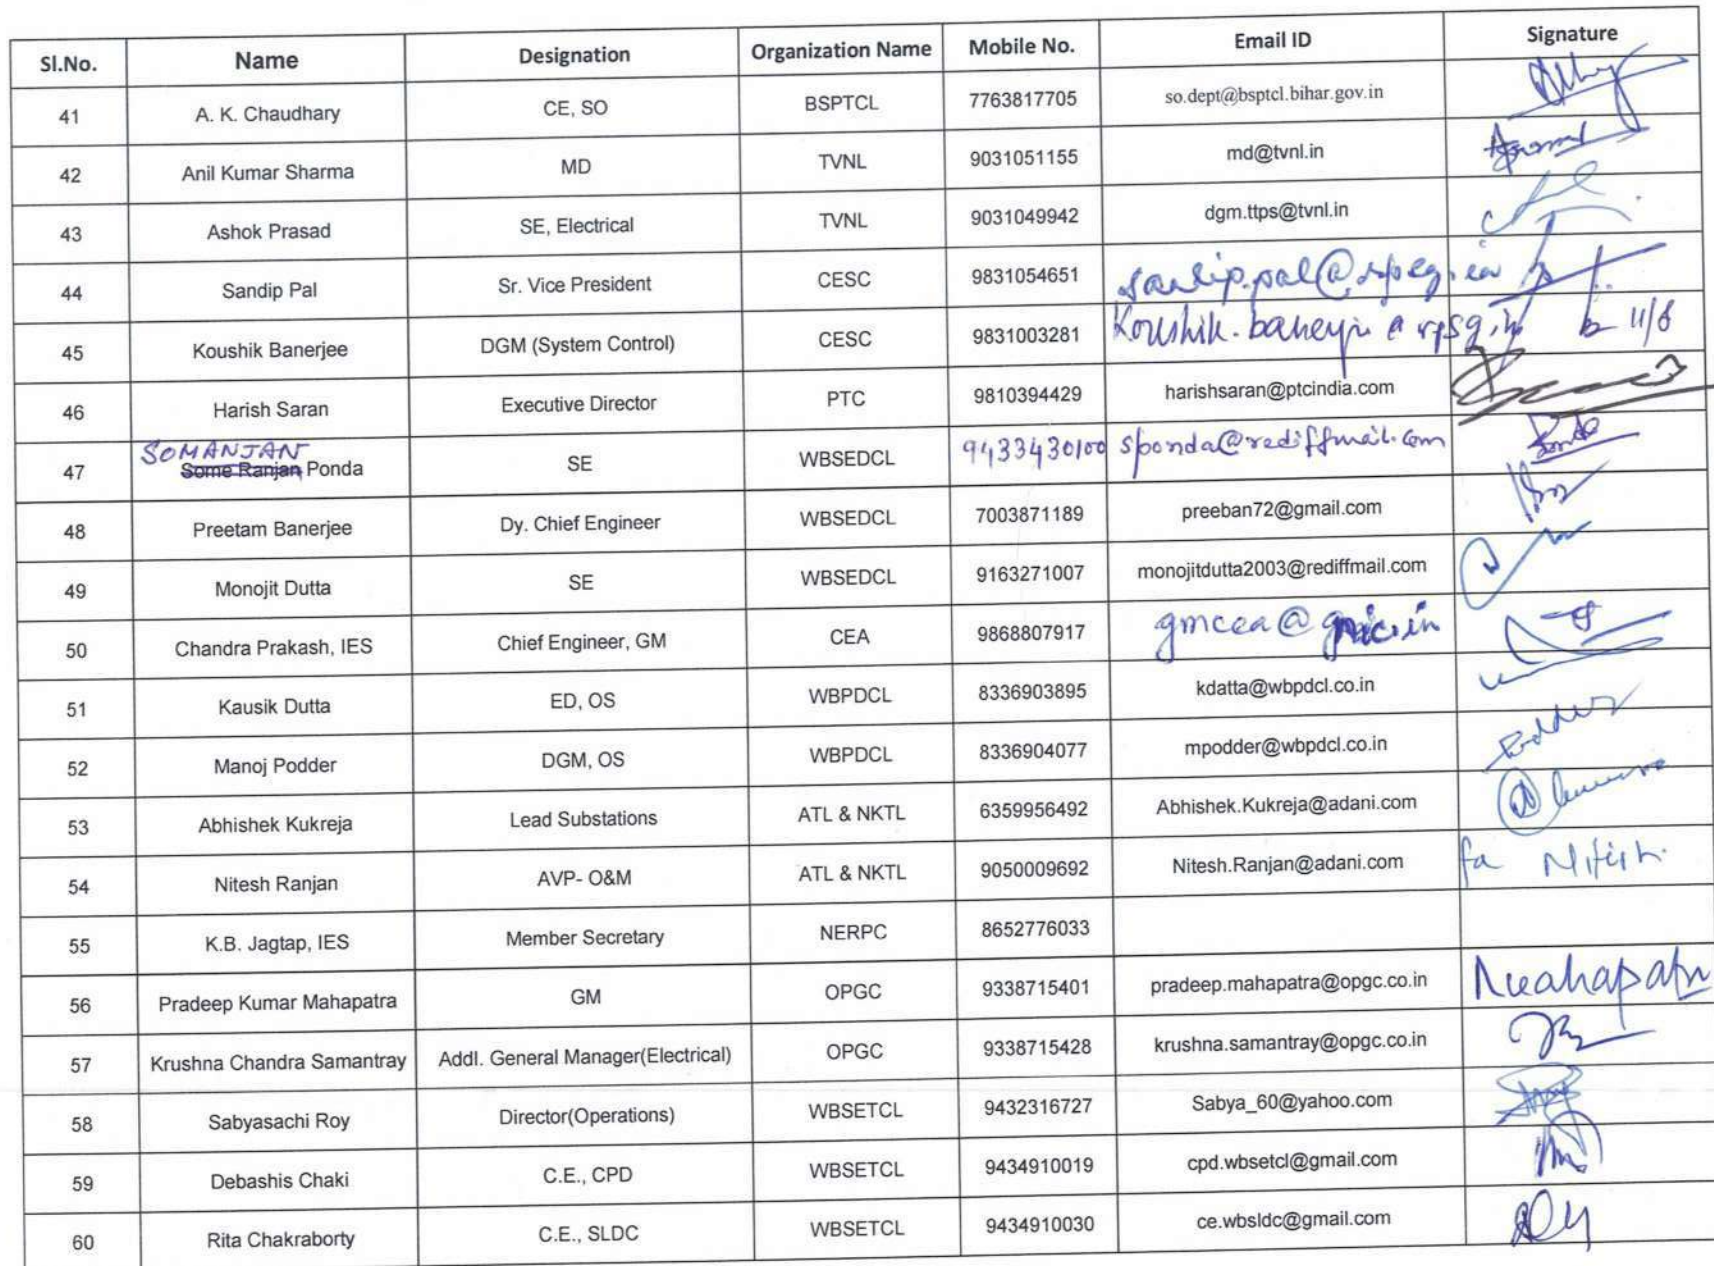 Sl.No. Name Designation Organization Name Mobile No. Email ID Signature
41 A. K. Chaudhary CE, SO BSPTCL 7763817705 so.dept@bsptcl.bihar.gov.in
42 Anil Kumar Sharma MD TVNL 9031051155 md@tvnl.in
43 Ashok Prasad SE, Electrical TVNL 9031049942 dgm.ttps@tvnl.in
44 Sandip Pal Sr. Vice President CESC 9831054651 sandip.pal@rpsg.in
45 Koushik Banerjee DGM (System Control) CESC 9831003281 Koushik.banerjee@rpsg.in 11/6
46 Harish Saran Executive Director PTC 9810394429 harishsaran@ptcindia.com
SOMANJAN
47 Some Ranjan Ponda SE WBSEDCL 9433430100 sponda@rediffmail.com
48 Preetam Banerjee Dy. Chief Engineer WBSEDCL 7003871189 preeban72@gmail.com
49 Monojit Dutta SE WBSEDCL 9163271007 monojitdutta2003@rediffmail.com
50 Chandra Prakash, IES Chief Engineer, GM CEA 9868807917 gmcea@nic.in
51 Kausik Dutta ED, OS WBPDCL 8336903895 kdatta@wbpdcl.co.in
52 Manoj Podder DGM, OS WBPDCL 8336904077 mpodder@wbpdcl.co.in Podder
53 Abhishek Kukreja Lead Substations ATL & NKTL 6359956492 Abhishek.Kukreja@adani.com
54 Nitesh Ranjan AVP- O&M ATL & NKTL 9050009692 Nitesh.Ranjan@adani.com Nitish
55 K.B. Jagtap, IES Member Secretary NERPC 8652776033
56 Pradeep Kumar Mahapatra GM OPGC 9338715401 pradeep.mahapatra@opgc.co.in Mahapatra
57 Krushna Chandra Samantray Addl. General Manager(Electrical) OPGC 9338715428 krushna.samantray@opgc.co.in
58 Sabyasachi Roy Director(Operations) WBSETCL 9432316727 Sabya_60@yahoo.com
59 Debashis Chaki C.E., CPD WBSETCL 9434910019 cpd.wbsetcl@gmail.com
60 Rita Chakraborty C.E., SLDC WBSETCL 9434910030 ce.wbsldc@gmail.com